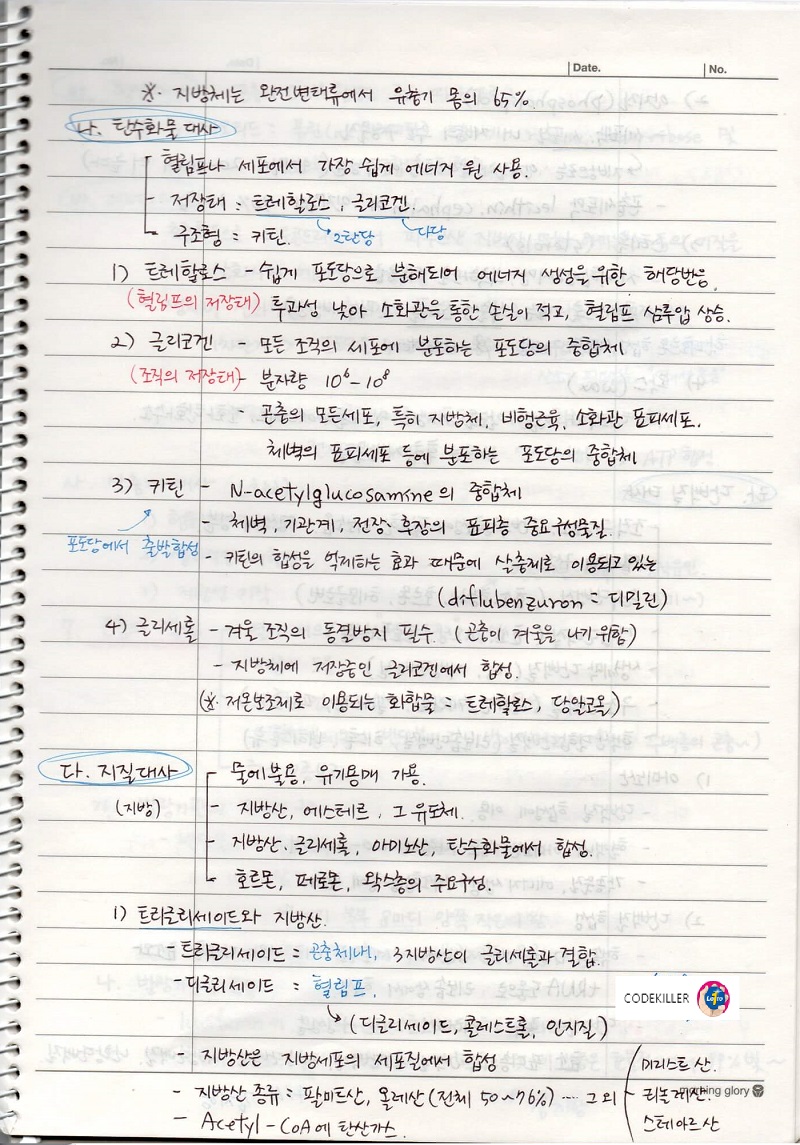 Date.
No.
※. 지방체는 완전변태류에서 유충기 몸의 65%.
나. 탄수화물 대사
혈림프나 세포에서 가장 쉽게 에너지원 사용.
- 저장태 : 트레할로스, 글리코겐.
구조형 = 키틴. 2탄당 다당
1) 트레할로스 - 쉽게 포도당으로 분해되어 에너지 생성을 위한 해당반응.
(혈림프의 저장태) 투과성 낮아 소화관을 통한 손실이 적고, 혈림프 삼투압 상승.
2) 글리코겐 - 모든 조직의 세포에 분포하는 포도당의 중합체.
(조직의 저장태) - 분자량 10⁶-10⁸
- 곤충의 모든세포, 특히 지방체, 비행근육, 소화관 표피세포.
체벽의 표피세포 등에 분포하는 포도당의 중합체
3) 키틴 - N-acetylglucosamine의 중합체
- 체벽, 기관계, 전장·후장의 표피층 중요구성물질.
포도당에서 출발합성
- 키틴의 합성을 억제하는 효과 때문에 살충제로 이용되고 있는
(diflubenzuron - 디밀린)
4) 글리세롤 - 겨울 조직의 동결방지 필수. (곤충이 겨울을 나기 위함)
- 지방체에 저장중인 글리코겐에서 합성.
(※. 저온보조제로 이용되는 화합물 = 트레할로스, 당알코올)
다. 지질대사
물에 불용, 유기용매 가용.
(지방) - 지방산, 에스테르, 그 유도체.
- 지방산. 글리세롤, 아미노산, 탄수화물에서 합성.
호르몬, 페로몬, 왁스층의 주요구성.
1) 트리글리세이드와 지방산.
- 트리글리세이드 = 곤충체내, 3지방산이 글리세롤과 결합.
- 디글리세이드 = 혈림프.
CODEKILLER
(디글리세이드, 콜레스트롤, 인지질)
- 지방산은 지방세포의 세포질에서 합성
- 지방산 종류 : 팔미트산, 올레산(전체 50~76%) ···· 그 외
미리스트산.
리놀레산.
스테아르산
morning glory
- Acetyl-CoA에 탄산가스.